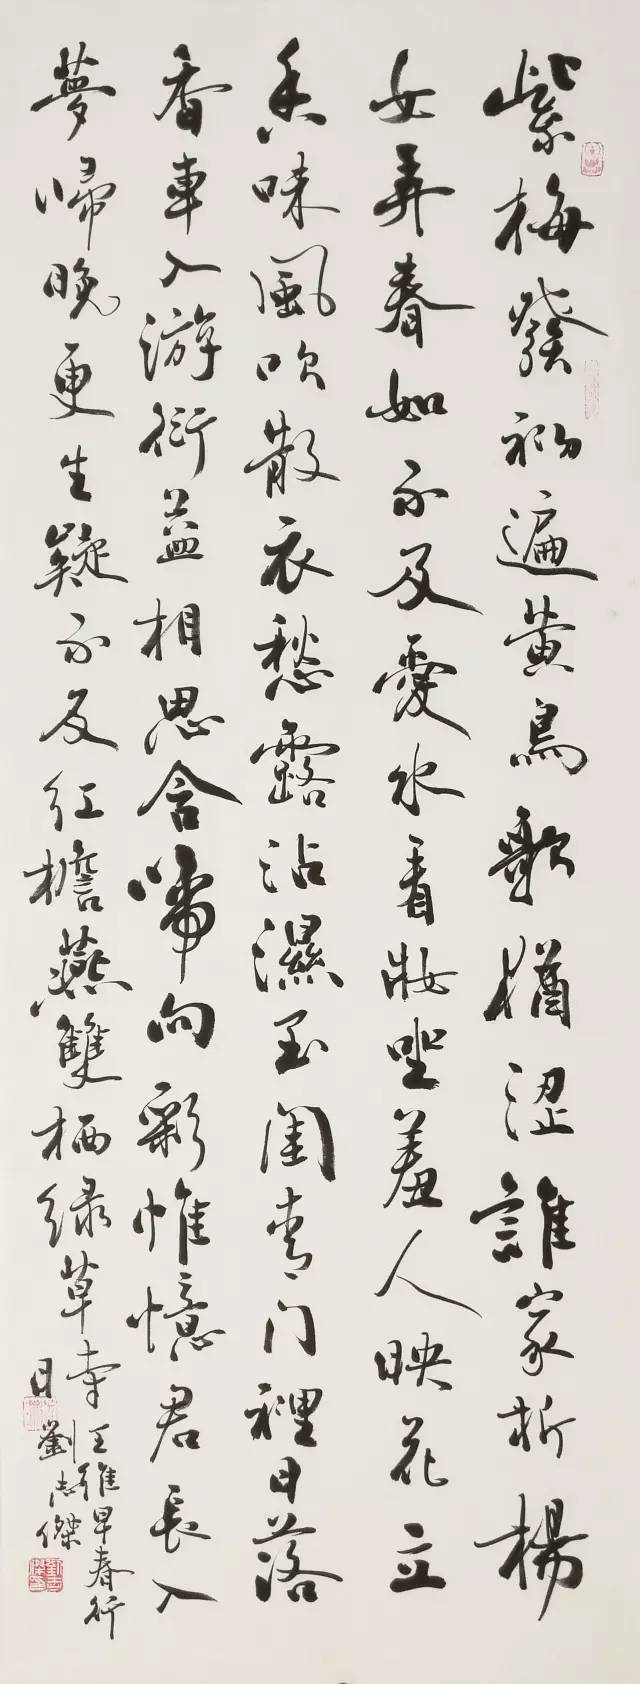 紫梅發初遍黄鳥歌猶涩誰家折楊
女弄春如不及愛水看妝坐羞人映花立
香味風吹散衣愁露沾濕玉閨青门裡日落
香車入游衍益相思含啼向彩帷憶君長入
夢歸晚更生疑不及紅檐燕雙栖緑草時
王維早春行
劉志傑